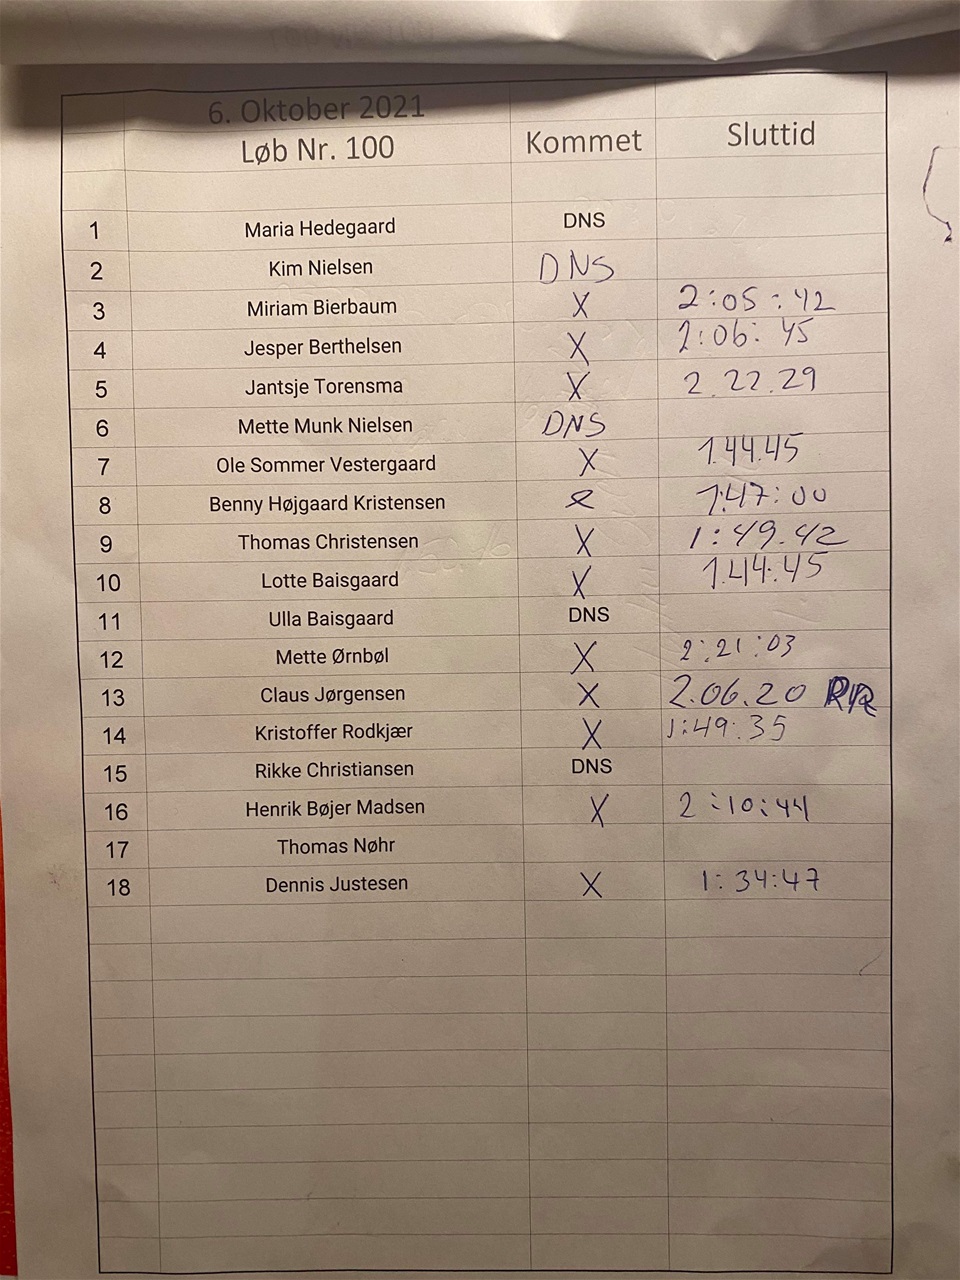 6. Oktober 2021
Løb Nr. 100 Kommet Sluttid
1 Maria Hedegaard DNS
2 Kim Nielsen DNS
3 Miriam Bierbaum X 2:05:42
4 Jesper Berthelsen X 2:06:45
5 Jantsje Torensma X 2.22.29
6 Mette Munk Nielsen DNS
7 Ole Sommer Vestergaard X 1.44.45
8 Benny Højgaard Kristensen X 1:47:00
9 Thomas Christensen X 1:49.42
10 Lotte Baisgaard X 1.44:45
11 Ulla Baisgaard DNS
12 Mette Ørnbøl X 2:21:03
13 Claus Jørgensen X 2.06.20 RR
14 Kristoffer Rodkjær X 1:49:35
15 Rikke Christiansen DNS
16 Henrik Bøjer Madsen X 2:10:44
17 Thomas Nøhr
18 Dennis Justesen X 1:34:47